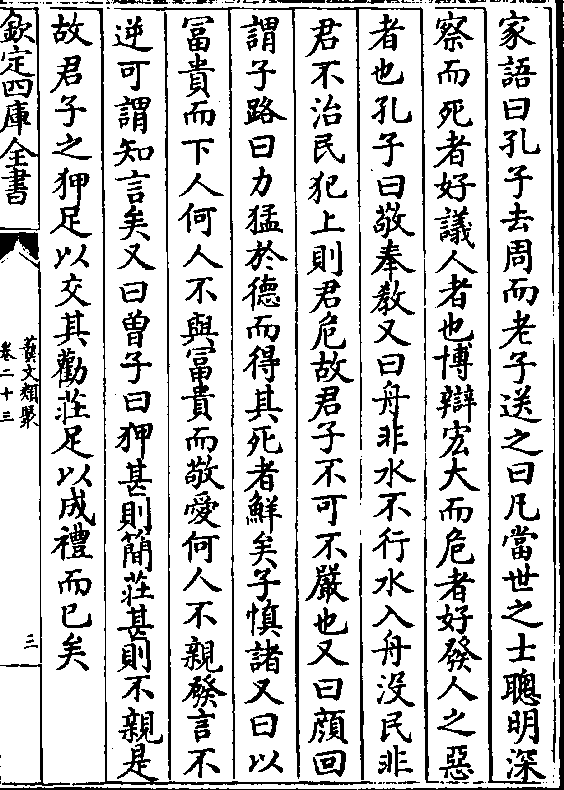 家語曰孔子去周而老子送之曰凡當世之士聰明深
察而死者好議人者也博辯宏大而危者好發人之惡
者也孔子曰敬奉教又曰舟非水不行水入舟没民非
君不治民犯上則君危故君子不可不嚴也又曰顔回
謂子路曰力猛於德而得其死者鮮矣子慎諸又曰以
富貴而下人何人不與富貴而敬愛何人不親發言不
逆可謂知言矣又曰曾子曰狎甚則簡莊甚則不親是
故君子之狎足以交其勸莊足以成禮而已矣
欽定四庫全書
藝文類聚
卷二十三
三